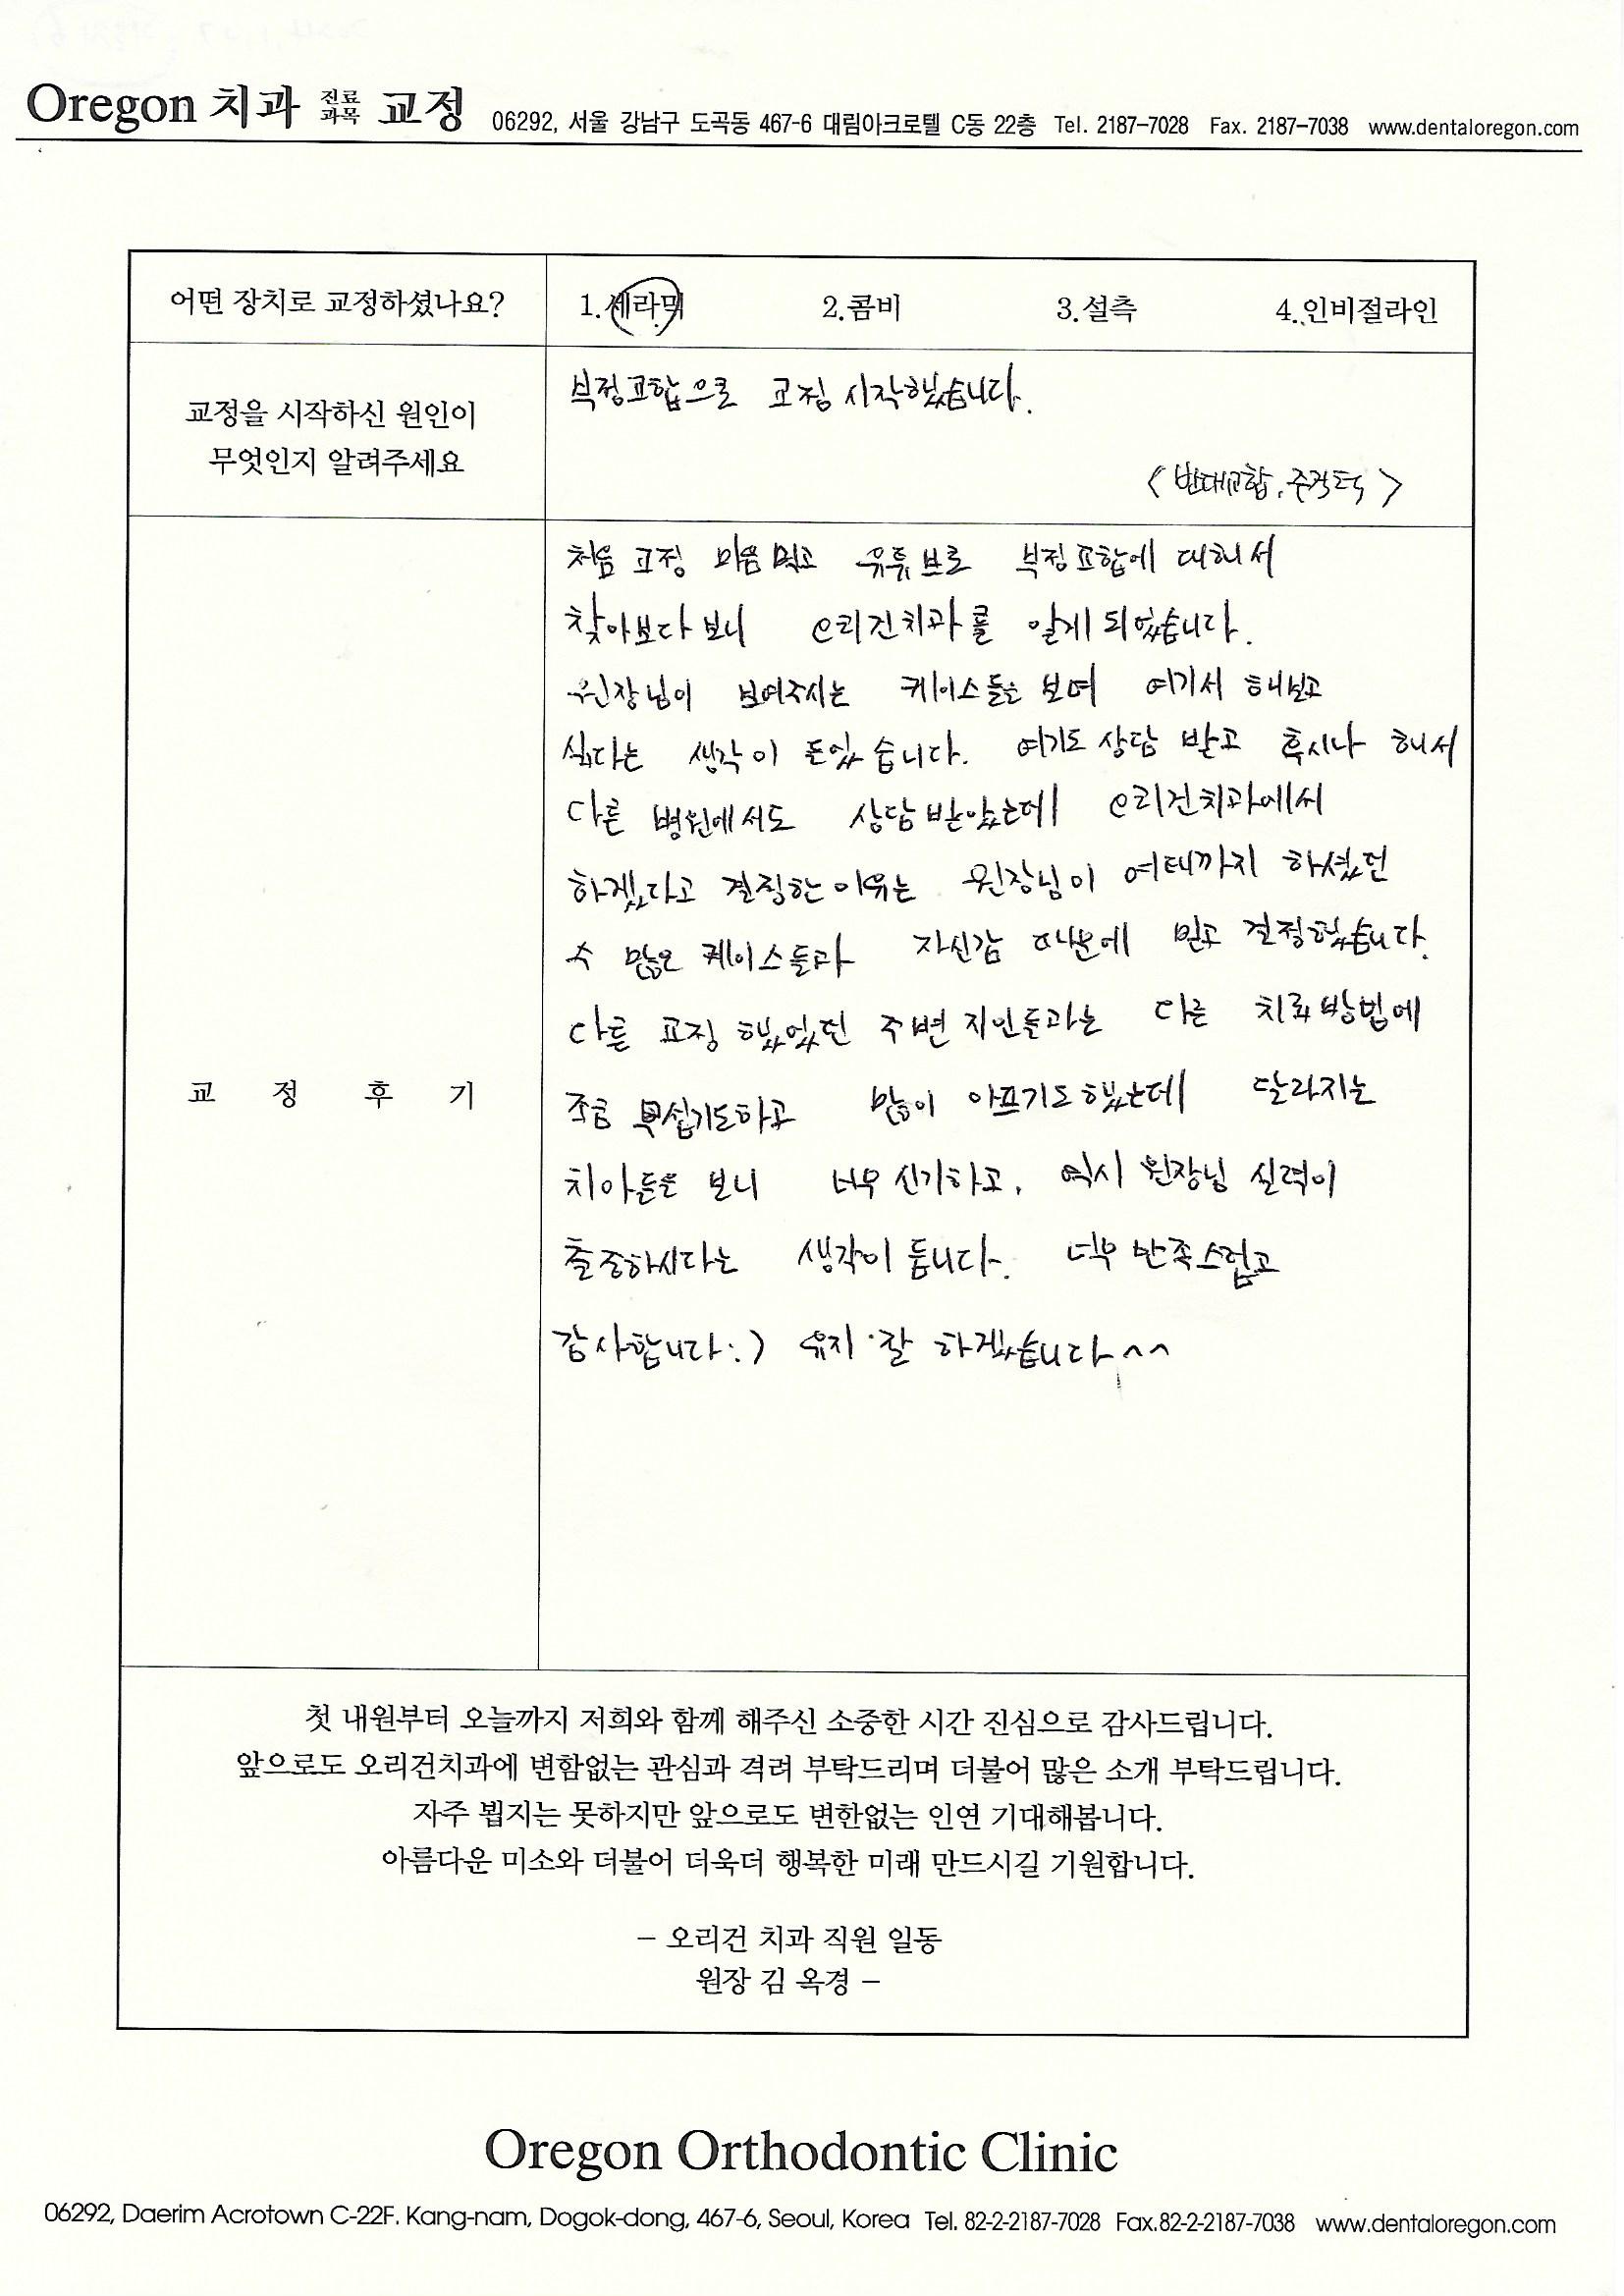 Oregon 치과 진료과목 교정 06292, 서울 강남구 도곡동 467-6 대림아크로텔 C동 22층 Tel. 2187-7028 Fax. 2187-7038 www.dentaloregon.com
어떤 장치로 교정하셨나요? 1.세라믹 2.콤비 3.설측 4.인비절라인
교정을 시작하신 원인이
무엇인지 알려주세요
부정교합으로 교정 시작했습니다.
<반대교합, 주걱턱>
교 정 후 기
처음 교정 마음 먹고 유튜브로 부정교합에 대해서
찾아보다 보니 오리건치과를 알게 되었습니다.
원장님이 보여주시는 케이스들을 보며 여기서 해보고
싶다는 생각이 든었습니다. 여기도 상담 받고 혹시나 해서
다른 병원에서도 상담받았는데 오리건치과에서
하겠다고 결정한 이유는 원장님이 여태까지 하셨던
수 많은 케이스들과 자신감 때문에 믿고 결정했습니다.
다른 교정 했었던 주변 지인들과는 다른 치료방법에
조금 무섭기도하고 많이 아프기도했는데 달라지는
치아들을 보니 너무 신기하고, 역시 원장님 실력이
출중하시다는 생각이 듭니다. 너무 만족스럽고
감사합니다:) 유지 잘 하겠습니다^^
첫 내원부터 오늘까지 저희와 함께 해주신 소중한 시간 진심으로 감사드립니다.
앞으로도 오리건치과에 변함없는 관심과 격려 부탁드리며 더불어 많은 소개 부탁드립니다.
자주 뵙지는 못하지만 앞으로도 변한없는 인연 기대해봅니다.
아름다운 미소와 더불어 더욱더 행복한 미래 만드시길 기원합니다.
– 오리건 치과 직원 일동
원장 김 옥경 –
Oregon Orthodontic Clinic
06292, Daerim Acrotown C-22F. Kang-nam, Dogok-dong, 467-6, Seoul, Korea Tel. 82-2-2187-7028 Fax.82-2-2187-7038 www.dentaloregon.com